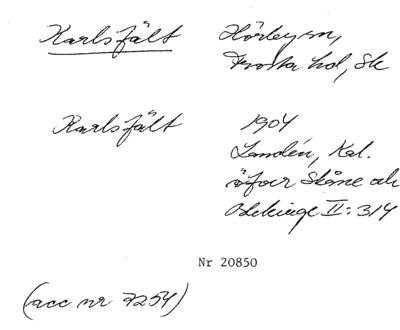 Karlsfält Hörby sn,
Frosta hd, Sk
Karlsfält 1904
Landén, Kat.
öfver Skåne och
Blekinge II: 314
Nr 20850
(acc nr 7254)